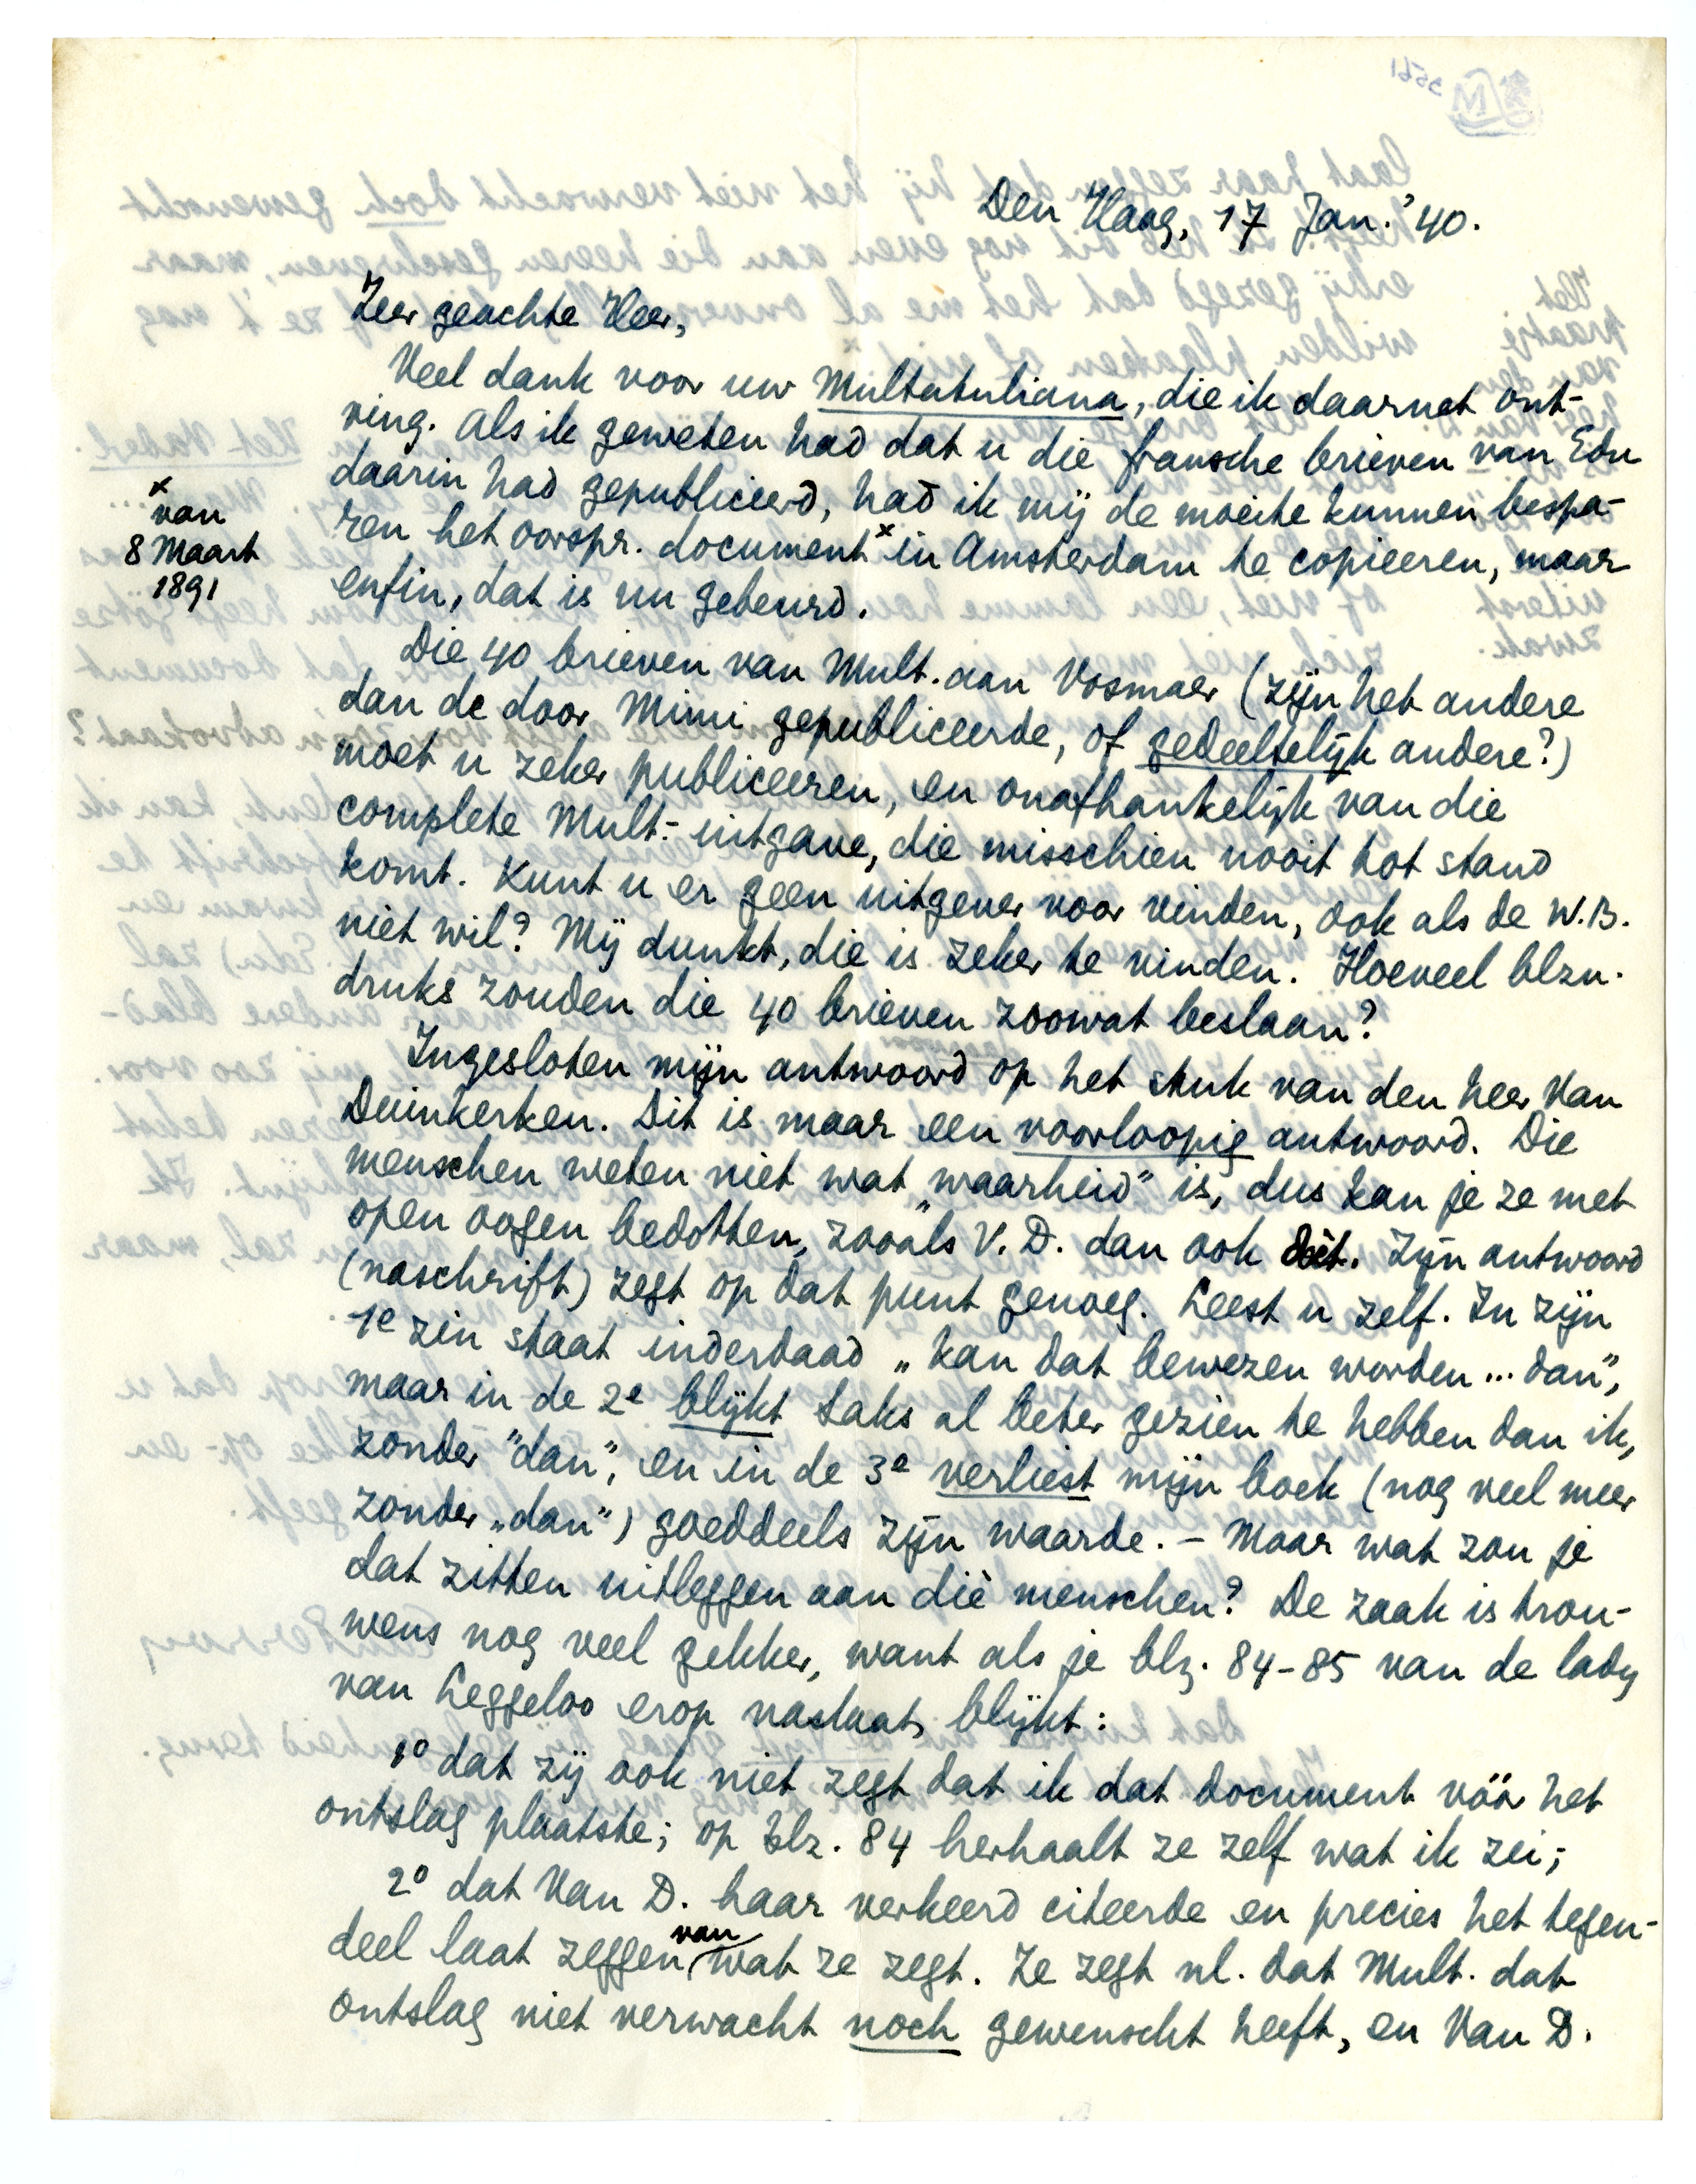 Den Haag, 17 Jan. '40.
Zeer geachte Heer,
Veel dank voor uw Multatuliana, die ik daarnet ont-
ving. Als ik geweten had dat u die fransche brieven van Edu
daarin had gepubliceerd, had ik mij de moeite kunnen bespa-
ren het oorspr. document x in Amsterdam te copieeren, maar
enfin, dat is nu gebeurd.
x
van
8 Maart
1891
Die 40 brieven van Mult. aan Vosmaer (zijn het andere
dan de door Mimi gepubliceerde, of gedeeltelijk andere?)
moet u zeker publiceeren, en onafhankelijk van die
complete Mult.-uitgave, die misschien nooit tot stand
komt. Kunt u er geen uitgever voor vinden, ook als de W.B.
niet wil? Mij dunkt, die is zeker te vinden. Hoeveel blzn.
druks zouden die 40 brieven zoowat beslaan?
Ingesloten mijn antwoord op het stuk van den heer Van
Duinkerken. Dit is maar een voorloopig antwoord. Die
menschen weten niet wat „waarheid” is, dus kan je ze met
open oogen bedotten, zooals V. D. dan ook dòèt. Zijn antwoord
(naschrift) zegt op dat punt genoeg. Leest u zelf. In zijn
1e zin staat inderdaad „kan dat bewezen worden... dan”,
maar in de 2e blijkt Saks al beter gezien te hebben dan ik,
zonder "dan", en in de 3e verliest mijn boek (nog veel meer
zonder „dan”) goeddeels zijn waarde. – Maar wat zou je
dat zitten uitleggen aan dìe menschen? De zaak is trou-
wens nog veel gekker, want als je blz. 84-85 van de lady
van Leggeloo erop naslaat, blijkt:
1o dat zij ook niet zegt dat ik dat document vóór het
ontslag plaatste; op blz. 84 herhaalt ze zelf wat ik zei;
2o dat Van D. haar verkeerd citeerde en precies het tegen-
deel laat zeggen van wat ze zegt. Ze zegt nl. dat Mult. dat
ontslag niet verwacht noch gewenscht heeft, en Van D.